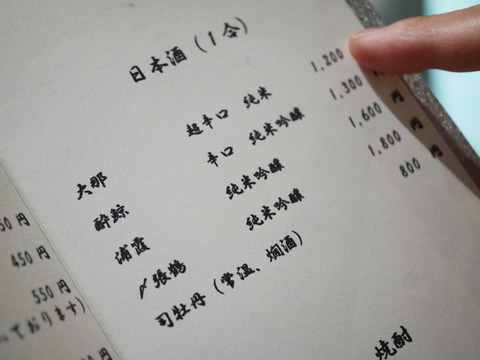 日本酒(1合)
大那 超辛口 純米 1,200
酔鯨 辛口 純米吟醸 1,300
浦霞 純米吟醸 1,600 円
〆張鶴 純米吟醸 1,800 円
司牡丹(常温、燗酒) 800 円
焼酎
50 円
450 円
550 円
っております)
円